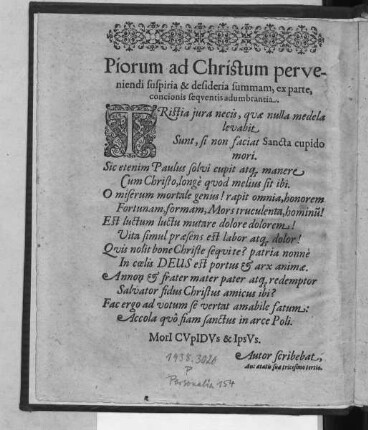 Piorum ad Christum perve-
niendi suspiria & desideria summam, ex parte,
concionis seqventis adumbrantia.
TRistia jura necis, qvæ nulla medela
levabit
Sunt, si non faciat Sancta cupido
mori.
Sic etenim Paulus solvi cupit atq, manere
Cum Christo, longè qvod melius sit ibi.
O miserum mortale genus! rapit omnia, honorem
Fortunam, formam, Mors truculenta, hominũ!
Est luctum luctu mutare dolore dolorem!
Vita simul præsens est labor atq, dolor!
Qvis nolit bone Christe seqvi te? patria nonnè
In cœlis DEUS est portus & arx animæ.
Annon & frater mater pater atq, redemptor
Salvator fidus Christus amicus ibi?
Fac ergo ad votum sè vertat amabile fatum:
Accola qvò fiam sanctus in arce Poli.
MorI CVpIDVs & IpsVs.
Autor scribebat,
An: ætatis suæ tricesimo tertio.
1938.3020
P
Personalia 154